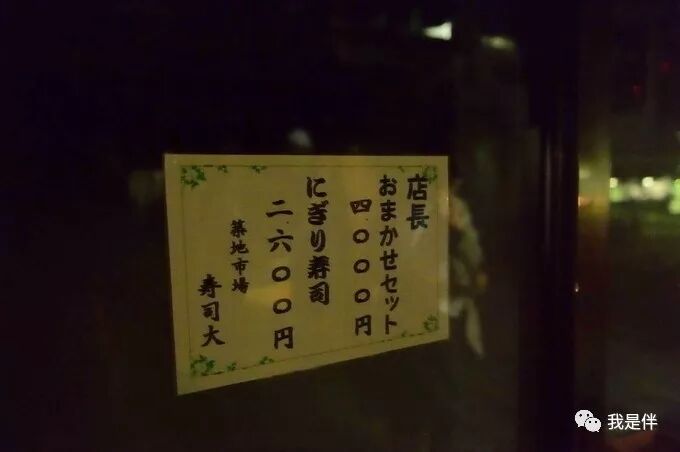 店長
おまかせセット
四.〇〇〇円
にぎり寿司
二.六〇〇円
築地市場
寿司大
我是伴